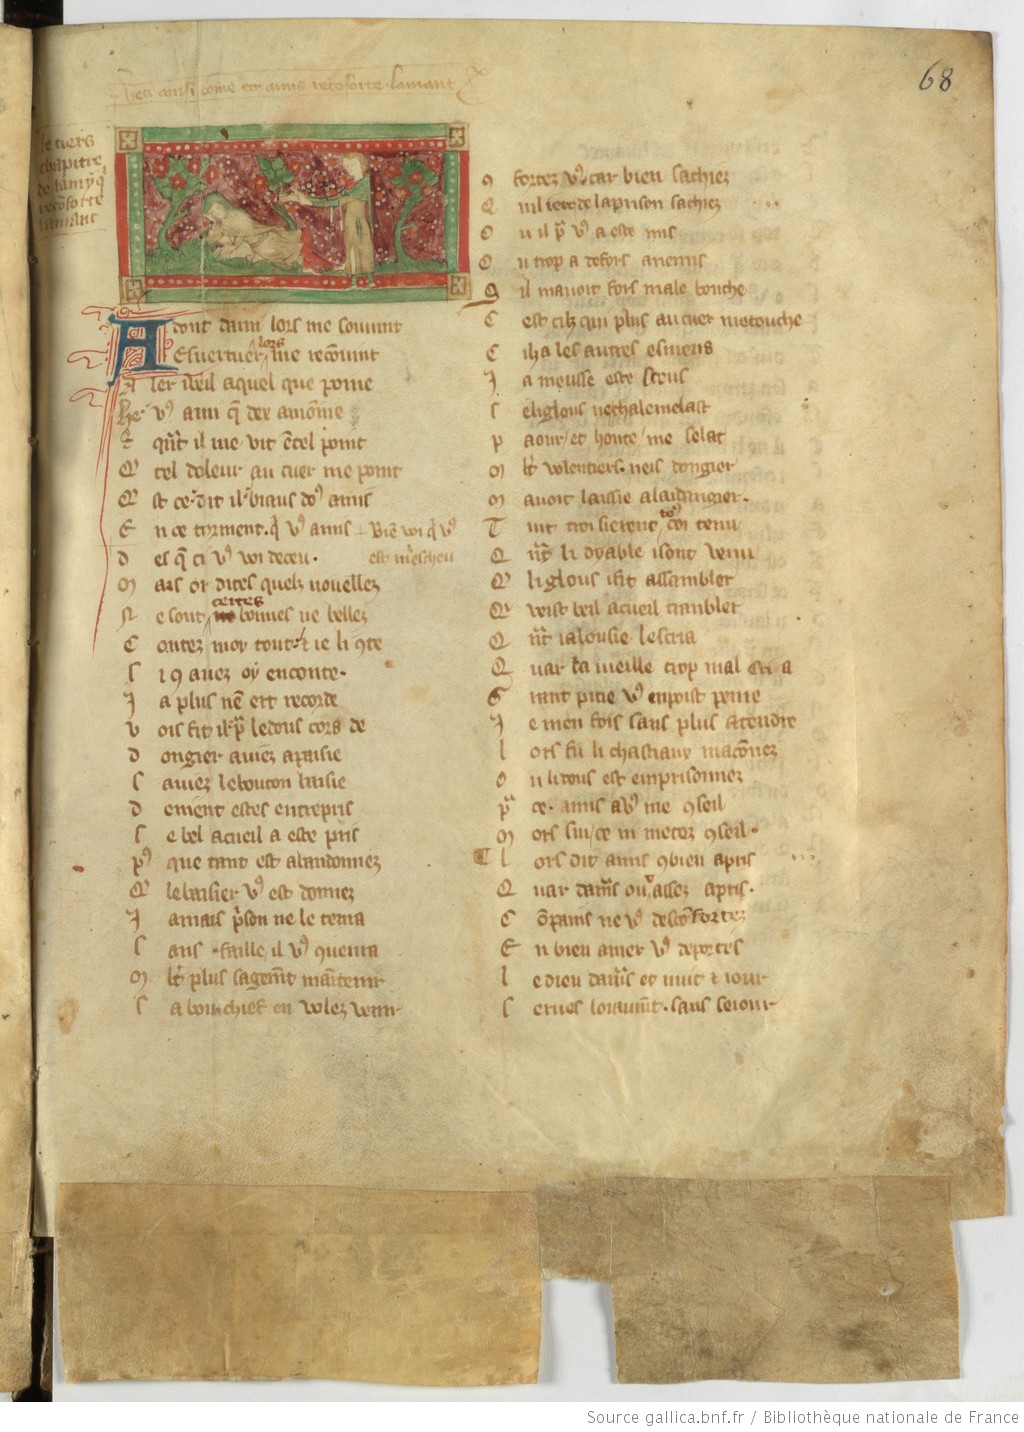 68
Veci ainsi come et amis recoforte lamant
le tiers
chapitre
de lamy q'
recoforte
lamant
A dont dam lors me souuint
Esuertuer lors me couuint
A ler i beil aquel que poine
He v9 ami q̄ dex amoīne
E qn̄t il me vit ētel point
Q tel doleur au cuer me point
Q st ce dit il biaus do9 amis
E n ce torment q' v9 a mis
Biē voi q' v9
est m̄escheu
D es q̄ ci v9 voi deceu.
M ais or dites quelx nouelles
N e sont certes bonnes ne belles
C ontez moy tout et ie li 9te
S i 9 auez oy en conte.
J a plus nē ert recorde
V ois fit il p̄ le dous cors de
D ongier auiez apaisie
S auiez le bouton baisie
D e nient estes entrepris
S e bel acueil a este pris
P9 que tant est abandonnez
Q le baisier v9 est donnez
J amais p̄son ne le tenra
S ans faille il v9 9uenra
M lt plus sagem̄t maītenir
S a bon chief en volez venir
9 fortez v9 car bien sachiez
Q uil iert de la prison sachiez
O u il p̄ v9 a este mis
O u trop a de fors anemis
Q il mauoit fors male bouche
C est cilz qui plus au cuer me touche
C ilz a les autres esmeus
J a meusse este sceus
S e li glous ne chalemelast
P aour et honte me celast
M lt volentiers neis dongier
M auoit laissie a laidangier.
T uit troi sierent tos coi tenu
Q n̄t li dyable i sont venu
Q li glous i fit assambler
Q veist bel acueil trambler
Q n̄t ialousie lescria
Q uar la vieille trop mal cri a
G rant pitie v9 en poist penre
J e men fois sans plus atendre
L ors fu li chastiaux maconnez
O u li dous est emprisonnez
P̄ ce amis a v9 me 9seil
M ors sui ce ni metez 9seil.
L ors dit amis 9 bien apris
Q uar dam̄s ou assez apris.
C ōpains ne v9 desconfortez
E n bien amer v9 deportez
L e dieu dam̄s et nuit et iour
S erues loraum̄t sans seiour
Source gallica.bnf.fr / Bibliothèque nationale de France